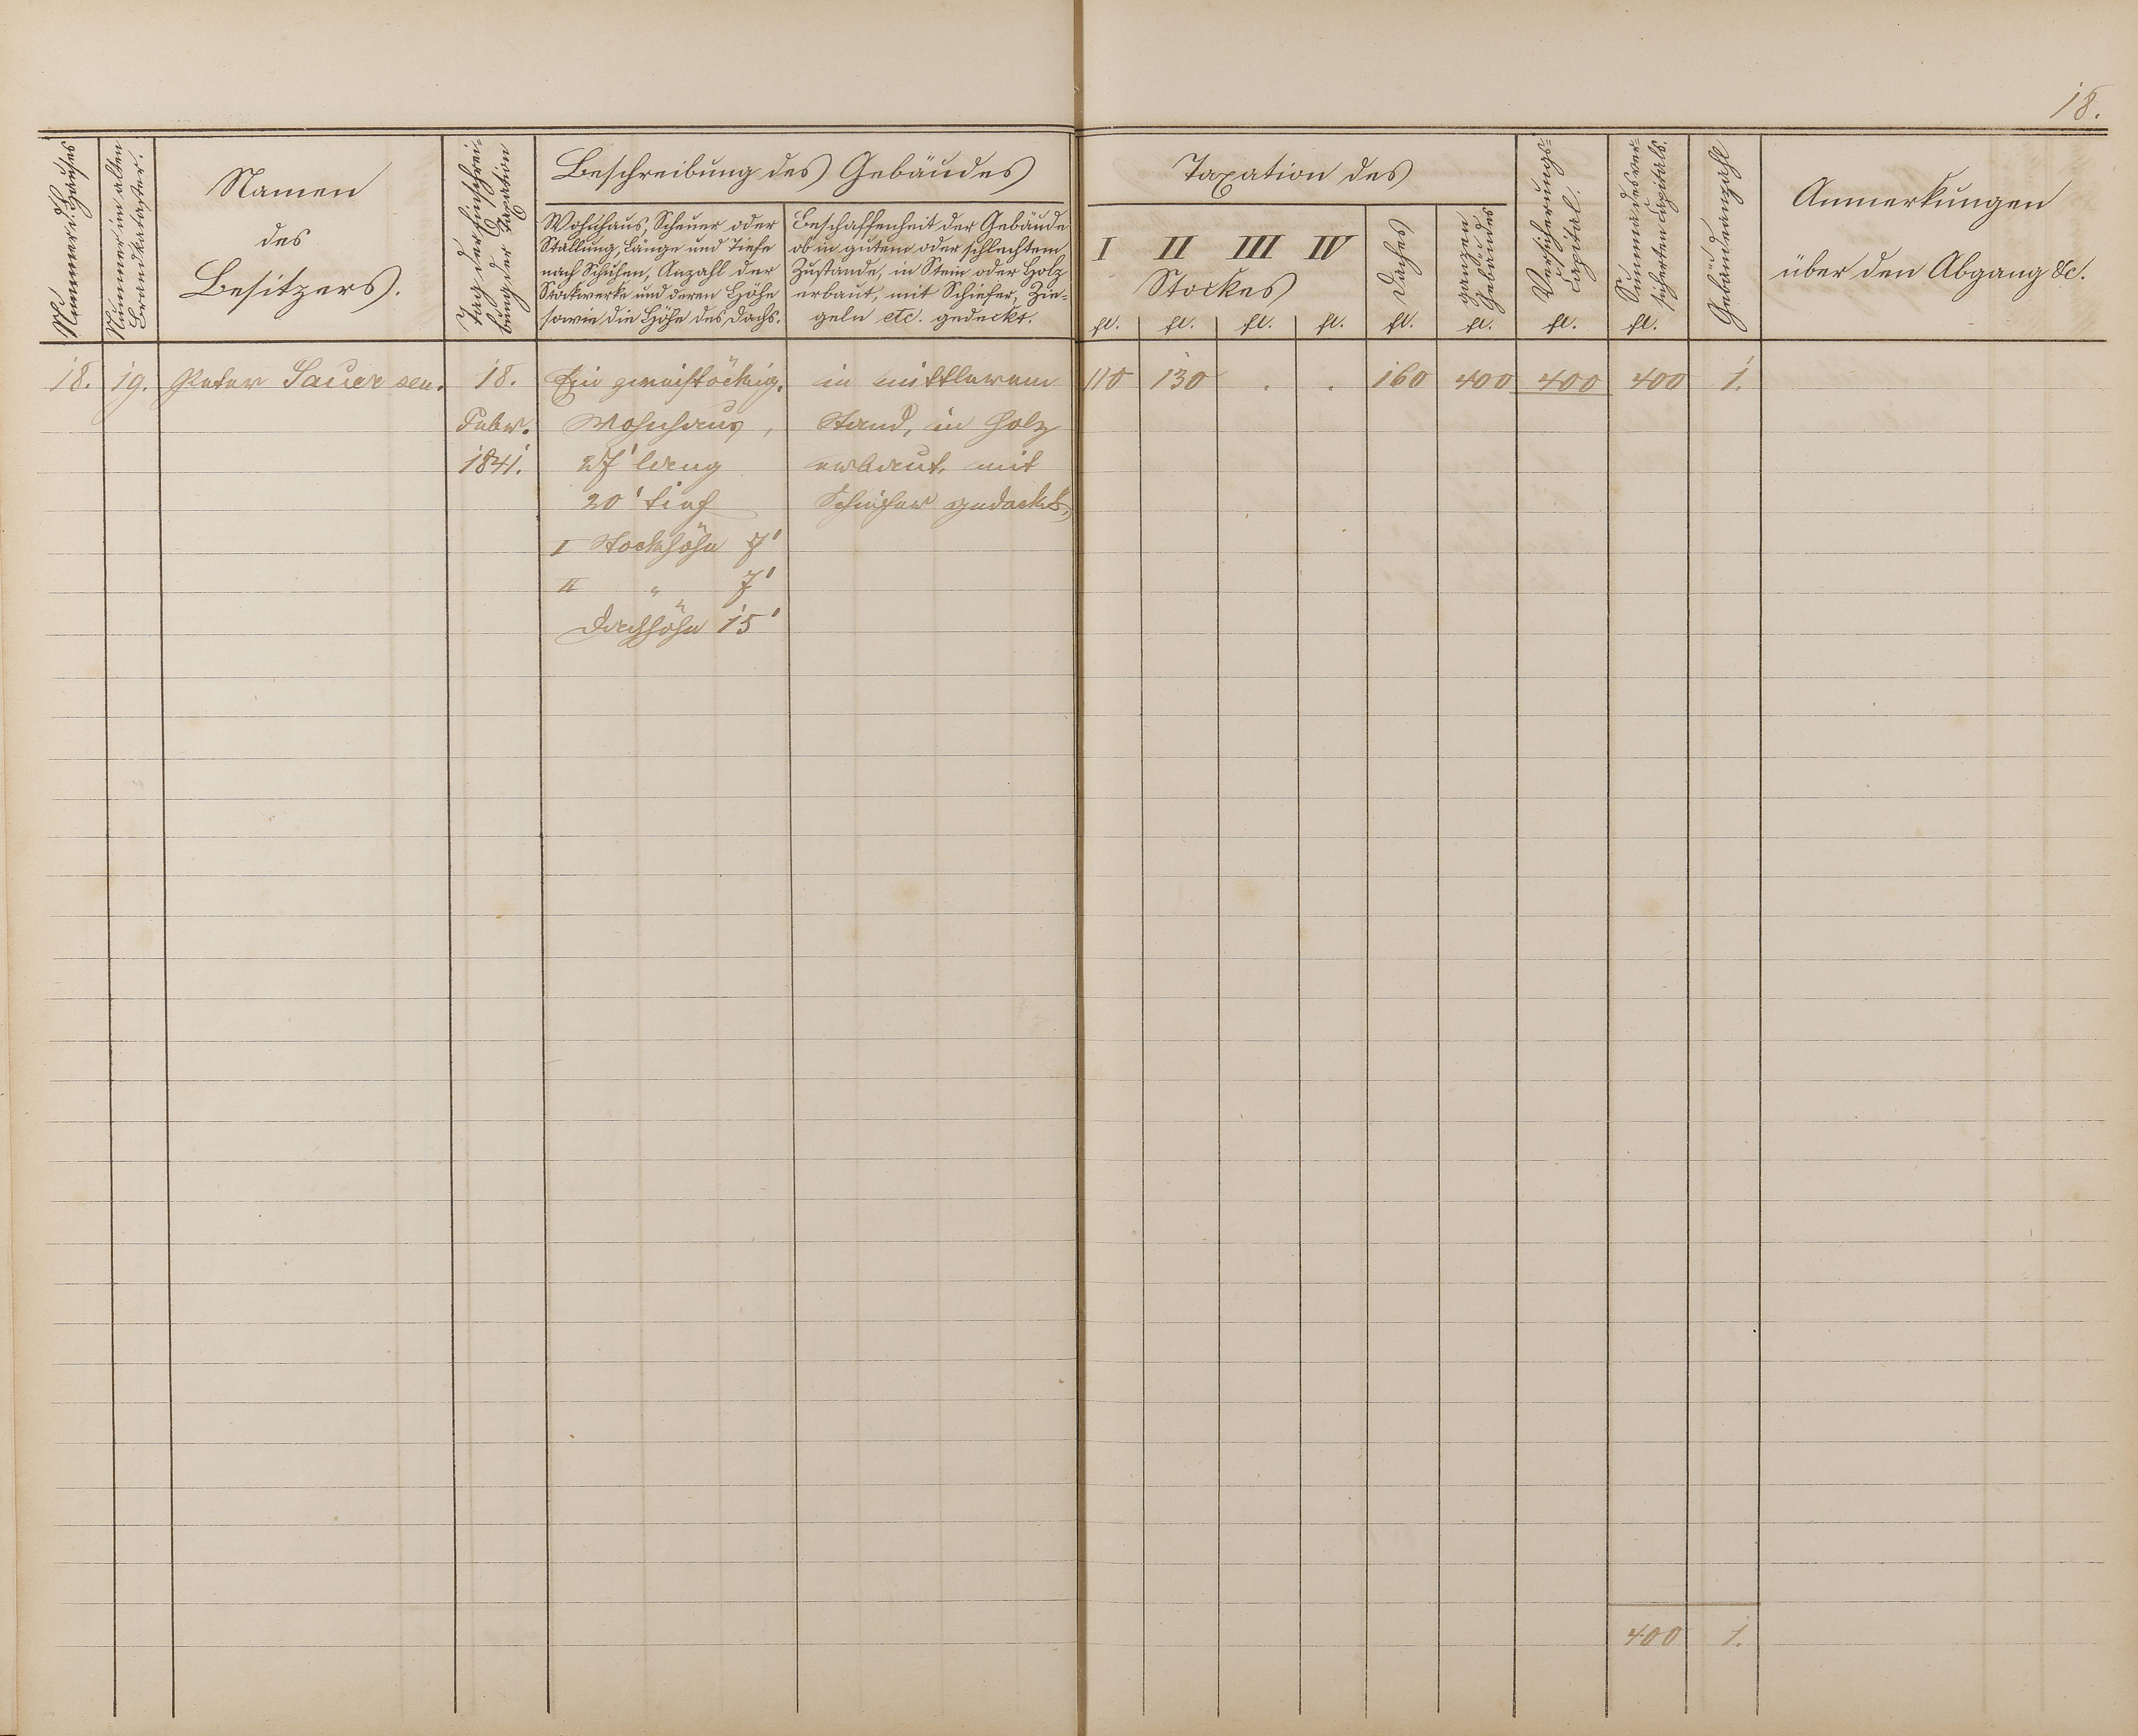 18.
Nummer d. Hauses
Nummer im alten
Brandkataster.
Namen
des
Besitzers.
Tag der Einschrei-
bung der Taxation
Beschreibung des Gebäudes
Wohnhaus, Scheuer oder
Stallung, Länge und Tiefe
nach Schuhen, Anzahl der
Stockwerke und deren Höhe
sowie die Höhe des Dachs.
Beschaffenheit der Gebäude
ob in gutem oder schlechtem
Zustande, in Stein oder Holz
erbaut, mit Schiefer, Zie-
geln etc. gedeckt.
Taxation des
I II III IV
Stockes
Daches
ganzen
Gebäudes
Versicherungs-
Capital.
Summa des ver-
sicherten Capitals.
Gebäudenzahl
Anmerkungen
über den Abgang &c.
fl. fl. fl. fl. fl. fl. fl. fl.
18. 19. Peter Sauer sen. 18. Ein zweistöckig. in mittlerem 110 130 . . 160 400 400 400 1.
Febr. Wohnhaus, Stand, in Holz
1841. 27' lang erbaut, mit
20' tief Schiefer gedeckt,
I Stockhöhe 7'
II " 7'
Dachhöhe 15'
400 1.